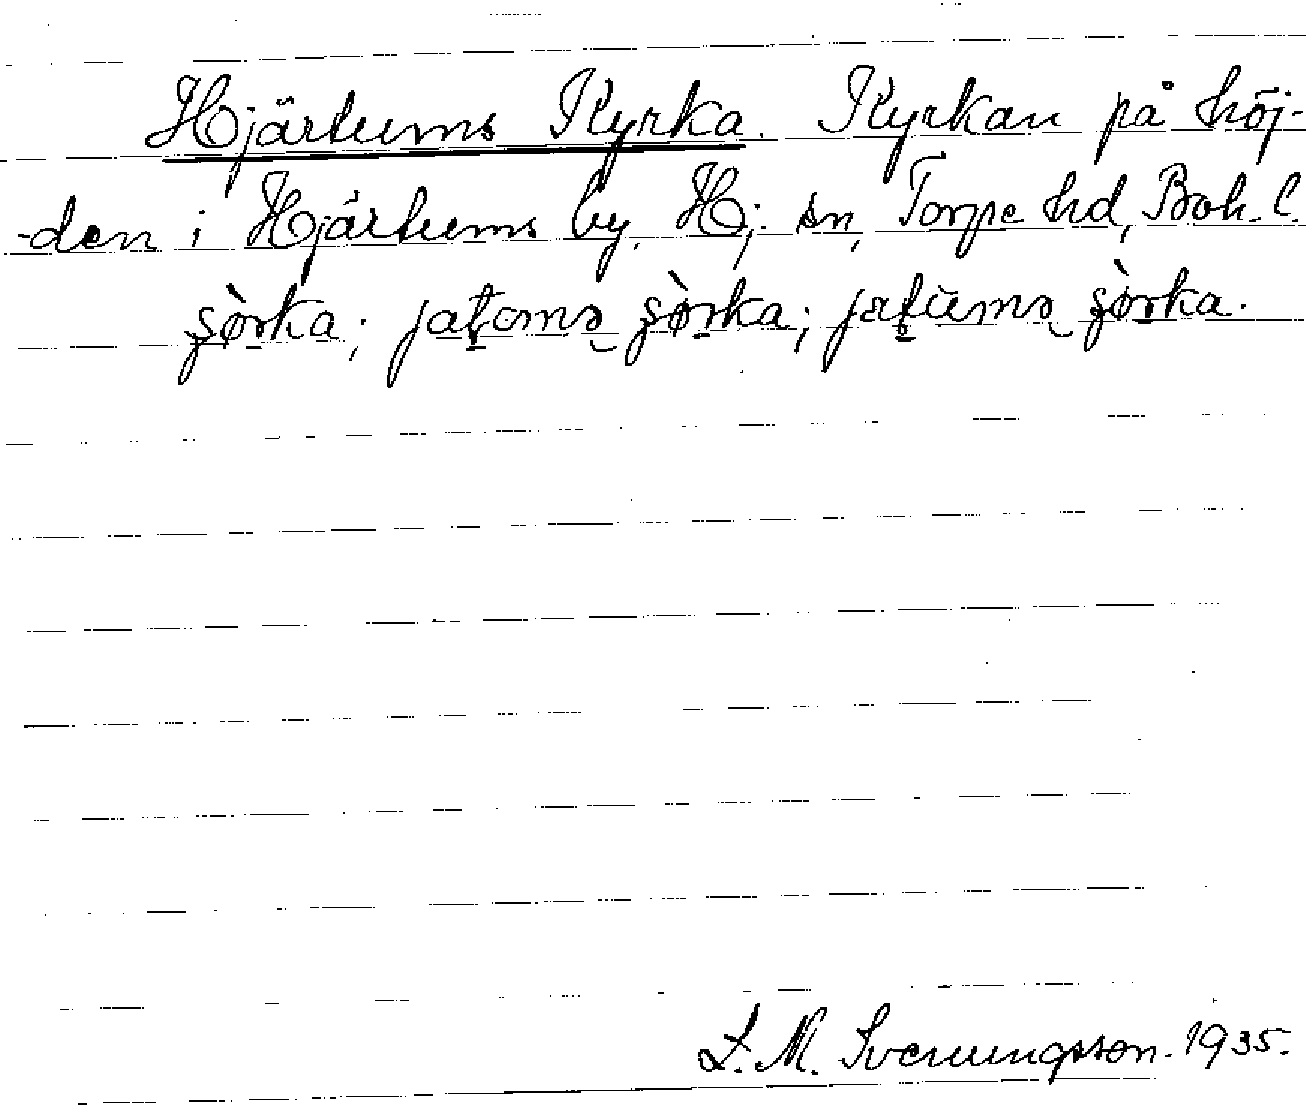 Hjärtums Kyrka. Kyrkan på höj-
-den i Hjärtums by, Hj. sn, Torpe hd, Boh. l.
şòrka; jaƫomə şòrka; jæƫumə şòrka.
L. M. Svenungsson. 1935.